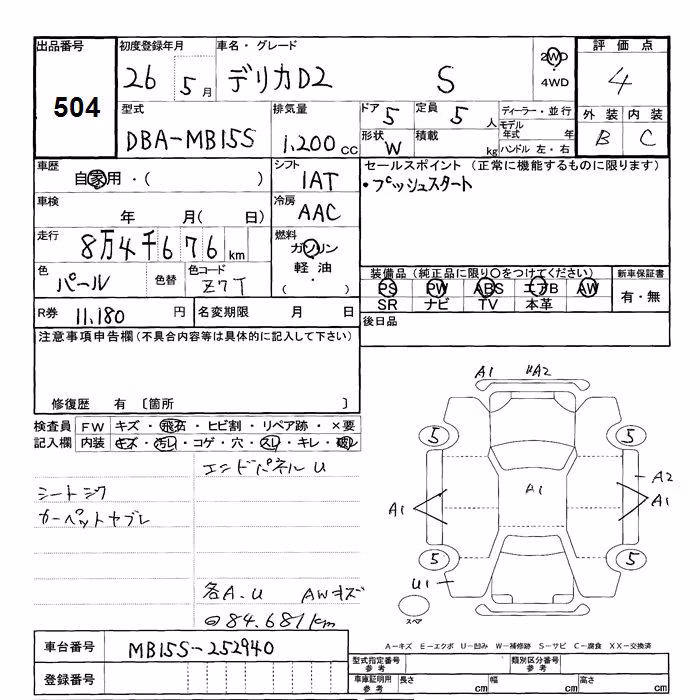 出品番号 初度登録年月 車名・グレード 評価点
504 26 5月 デリカD2 S 2WD 4WD 4
型式 排気量 ドア 5 定員 5人 ディーラー・並行 外装 内装
DBA-MB15S 1,200cc 形状 W 積載 kg モデル年式 年 ハンドル 左・右 B C
車歴 自家用・( ) シフト 1AT セールスポイント(正常に機能するものに限ります)
・プッシュスタート
車検 年 月( 日) 冷房 AAC
走行 8万4千676km 燃料 ガソリン 軽油 ( ・ )
色 パール 色替 色コード Z7T
装備品(純正品に限り○をつけてください) 新車保証書
PS PW ABS エアB AW 有・無
SR ナビ TV 本革
R券 11,180円 名変期限 月 日 後日品
注意事項申告欄(不具合内容等は具体的に記入して下さい)
修復歴 有 〔箇所 〕
検査員 FW キズ・飛石・ヒビ割・リペア跡・×要
記入欄 内装 キズ・汚レ・コゲ・穴・スレ・キレ・
エンドパネルU
シートシワ
カーペットヤブレ
各A.U AWキズ
84.681km
A1 A2
5 5
A1 A1 A2 A1
5 5
U1
スペア
A-キズ E-エクボ U-凹み W-補修跡 S-サビ C-腐食 XX-交換済
車台番号 MB15S-252940
登録番号
型式指定番号 参考 類別区分番号 参考
車庫証明用 参考 長さ cm 幅 cm 高さ cm